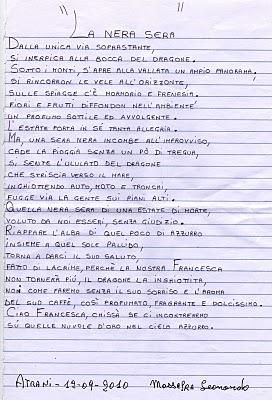 LA NERA SERA
DALLA UNICA VIA SOPRASTANTE,
SI INERPICA ALLA BOCCA DEL DRAGONE.
SOTTO I MONTI, S'APRE ALLA VALLATA UN AMPIO PANORAMA,
DI RINCORRON LE VELE ALL'ORIZZONTE,
SULLE SPIAGGE C'È MORMORIO E FRENESIA.
FIORI E FRUTTI DIFFONDON NELL'AMBIENTE
UN PROFUMO SOTTILE ED AVVOLGENTE.
L'ESTATE PORTA IN SÉ TANTA ALLEGRIA.
MA, UNA SERA NERA INCOMBE ALL'IMPROVVISO,
CADE LA PIOGGIA SENZA UN PÒ DI TREGUA,
SI SENTE L'ULULATO DEL DRAGONE
CHE STRISCIA VERSO IL MARE,
INGHIOTTENDO AUTO, MOTO E TRONCHI,
FUGGE VIA LA GENTE SUI PIANI ALTI.
QUELLA NERA SERA DI UNA ESTATE DI MORTE,
VOLUTO DA NOI ESSERI, SENZA GIUDIZIO.
RIAPPARE L'ALBA DI QUEL POCO DI AZZURRO
INSIEME A QUEL SOLE PALLIDO,
TORNA A DARCI IL SUO SALUTO,
FATTO DI LACRIME, PERCHÈ LA NOSTRA FRANCESCA
NON TORNERÀ PIÙ, IL DRAGONE LA INGHIOTTITA,
NOI COME FAREMO SENZA IL SUO SORRISO E L'AROMA
DEL SUO CAFFÈ, COSÌ PROFUMATO, FRAGRANTE E DOLCISSIMO.
CIAO FRANCESCA, CHISSÀ SE CI INCONTREREMO
SU QUELLE NUVOLE D'ORO NEL CIELO AZZURRO.
ATRANI - 19-09-2010 Massafra Leonardo